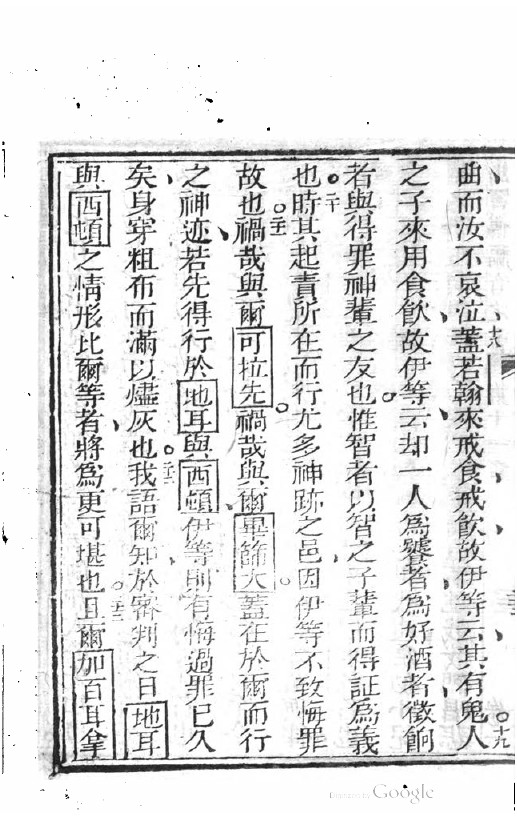 曲而汝不哀泣蓋若翰來戒食戒飮故伊等云其有鬼人
之子來用食飮故伊等云却一人爲饕者爲好酒者徵餉
者與得罪神輩之友也惟智者以智之子輩而得証爲義
也時其起責所在而行尤多神跡之邑因伊等不致悔罪
故也禍哉與爾可拉先禍哉與爾畢篩大蓋在於爾而行
之神迹若先得行於地耳與西頓伊等則有悔過罪已久
矣身穿粗布而滿以燼灰也我語爾知於審判之日地耳
與西頓之情形比爾等者將爲更可堪也且爾加百耳拿
十八
十九
二十
二十一
二十二
二十三
Digitized by Google